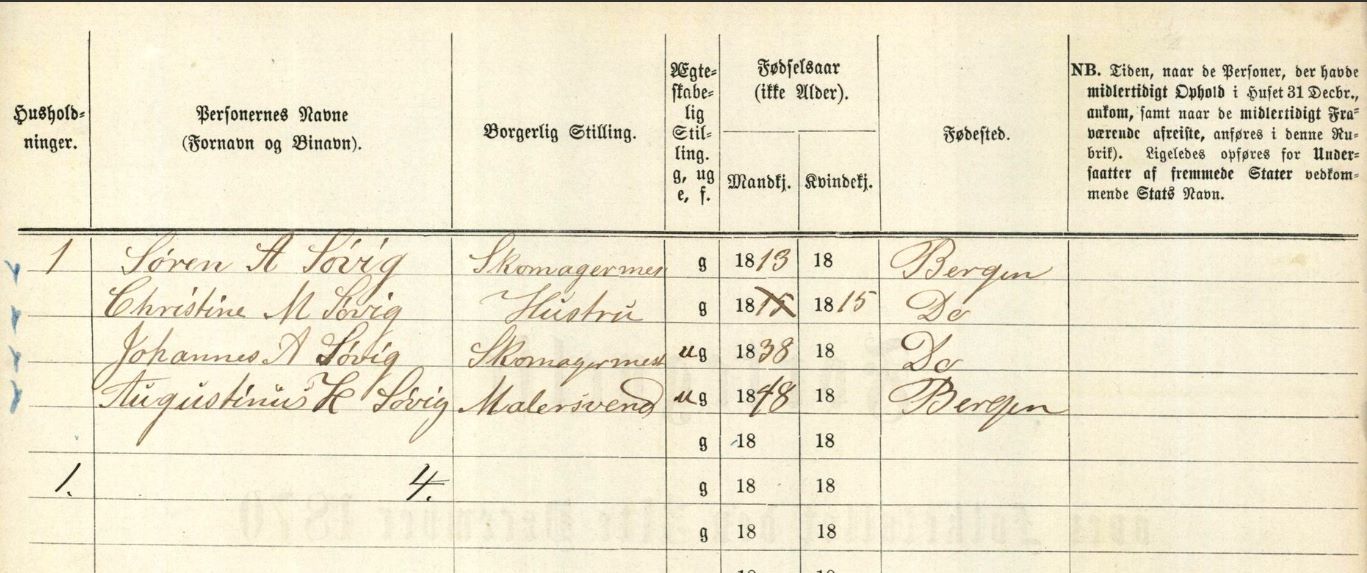 Hushold-
ninger.
Personernes Navne
(Fornavn og Binavn).
Borgerlig Stilling.
Ægte-
skabe-
lig
Stil-
ling.
g, ug
e, f.
Fødselsaar
(ikke Alder).
Mandkj.
Kvindekj.
Fødested.
NB. Tiden, naar de Personer, der havde
midlertidigt Ophold i Huset 31 Decbr.,
ankom, samt naar de midlertidigt Fra-
værende afreiste, anføres i denne Ru-
brik). Ligeledes opføres for Under-
saatter af fremmede Stater vedkom-
mende Stats Navn.
1 Søren A Søvig Skomagermes g 1813 18 Bergen
Christine M Søvig Hustru g 1815 1815 Do
Johannes A Søvig Skomagermest ug 1838 18 Do
Augustinus H Søvig Malersvend ug 1848 18 Bergen
g 18 18
1. 4. g 18 18
g 18 18